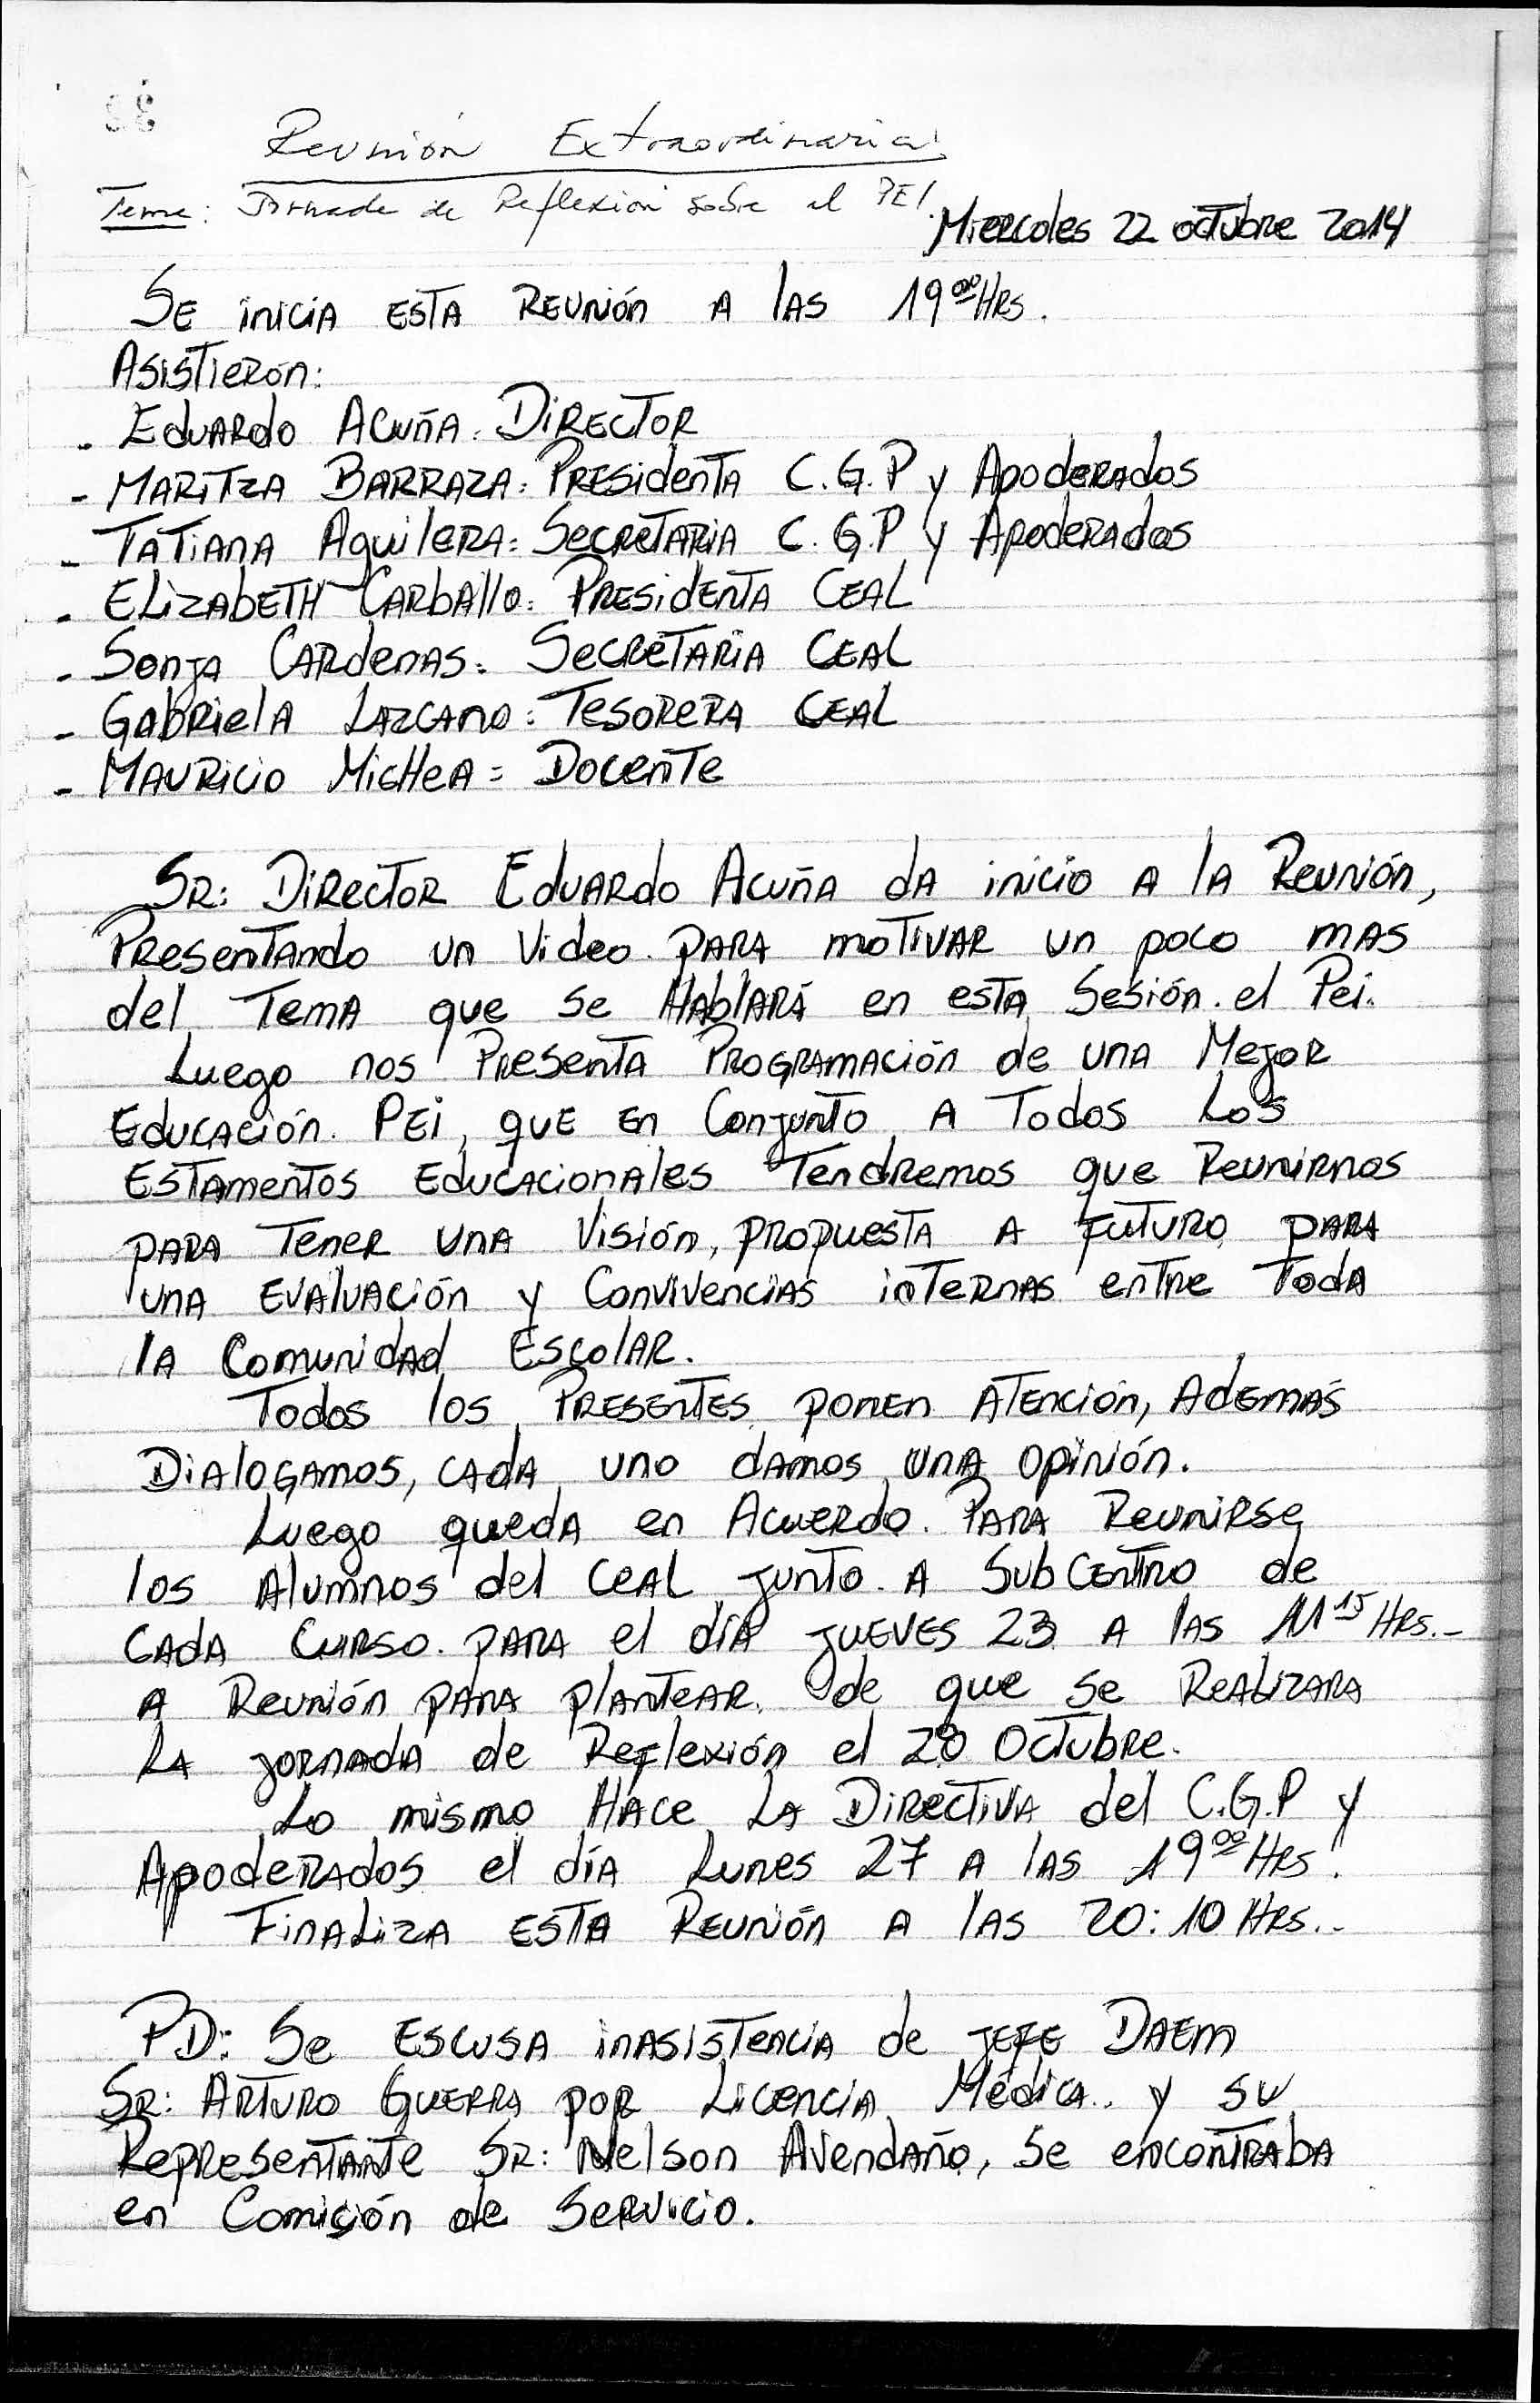 Reunión Extraordinaria
Tema: Jornada de Reflexión sobre el PEI.
Miercoles 22 octubre 2014
Se inicia esta Reunión a las 19⁰⁰ Hrs.
Asistieron:
- Eduardo Acuña: Director
- Maritza Barraza: Presidenta C.G.P y Apoderados
- Tatiana Aguilera: Secretaria C.G.P y Apoderados
- Elizabeth Carballo: Presidenta CEAL
- Sonja Cardenas: Secretaria CEAL
- Gabriela Lazcano: Tesorera CEAL
- Mauricio Michea: Docente
Sr: Director Eduardo Acuña da inicio a la Reunión,
Presentando un Video para motivar un poco mas
del Tema que se Hablará en esta Sesión. el Pei.
Luego nos Presenta Programación de una Mejor
Educación. PEi, que en Conjunto a Todos Los
Estamentos Educacionales Tendremos que Reunirnos
para Tener una Visión, propuesta a Futuro para
una Evaluación y Convivencias internas entre Toda
la Comunidad Escolar.
Todos los Presentes ponen Atención, Además
Dialogamos, cada uno damos una opinión.
Luego queda en Acuerdo. Para Reunirse
los Alumnos del CEAL junto a SubCentro de
cada Curso. para el día jueves 23 a las 11¹⁵ Hrs.-
a Reunión para plantear. de que se Realizara
La jornada de Reflexión el 28 Octubre.
Lo mismo Hace La Directiva del C.G.P y
Apoderados el día Lunes 27 a las 19⁰⁰ Hrs.
Finaliza esta Reunión a las 20:10 Hrs..-
PD: Se Escusa inasistencia de jefe Daem
Sr: Arturo Guerra por Licencia Médica.. y su
Representante Sr: Nelson Avendaño, se encontraba
en Comisión de Servicio.